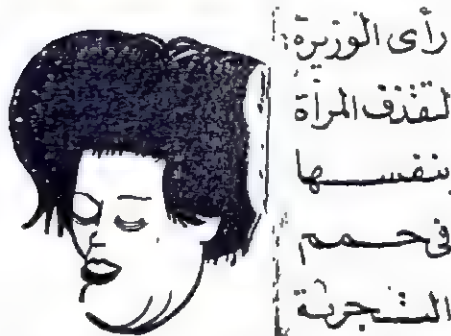 رأى الوزيرة:
لتقذف المرأة
بنفسها
فى حمم
التجربة